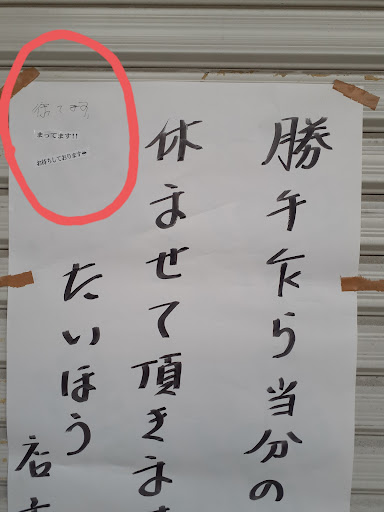 勝手乍ら当分の
休ませて頂きま
たいほう
店
待てます
まってます!!
お待ちしております